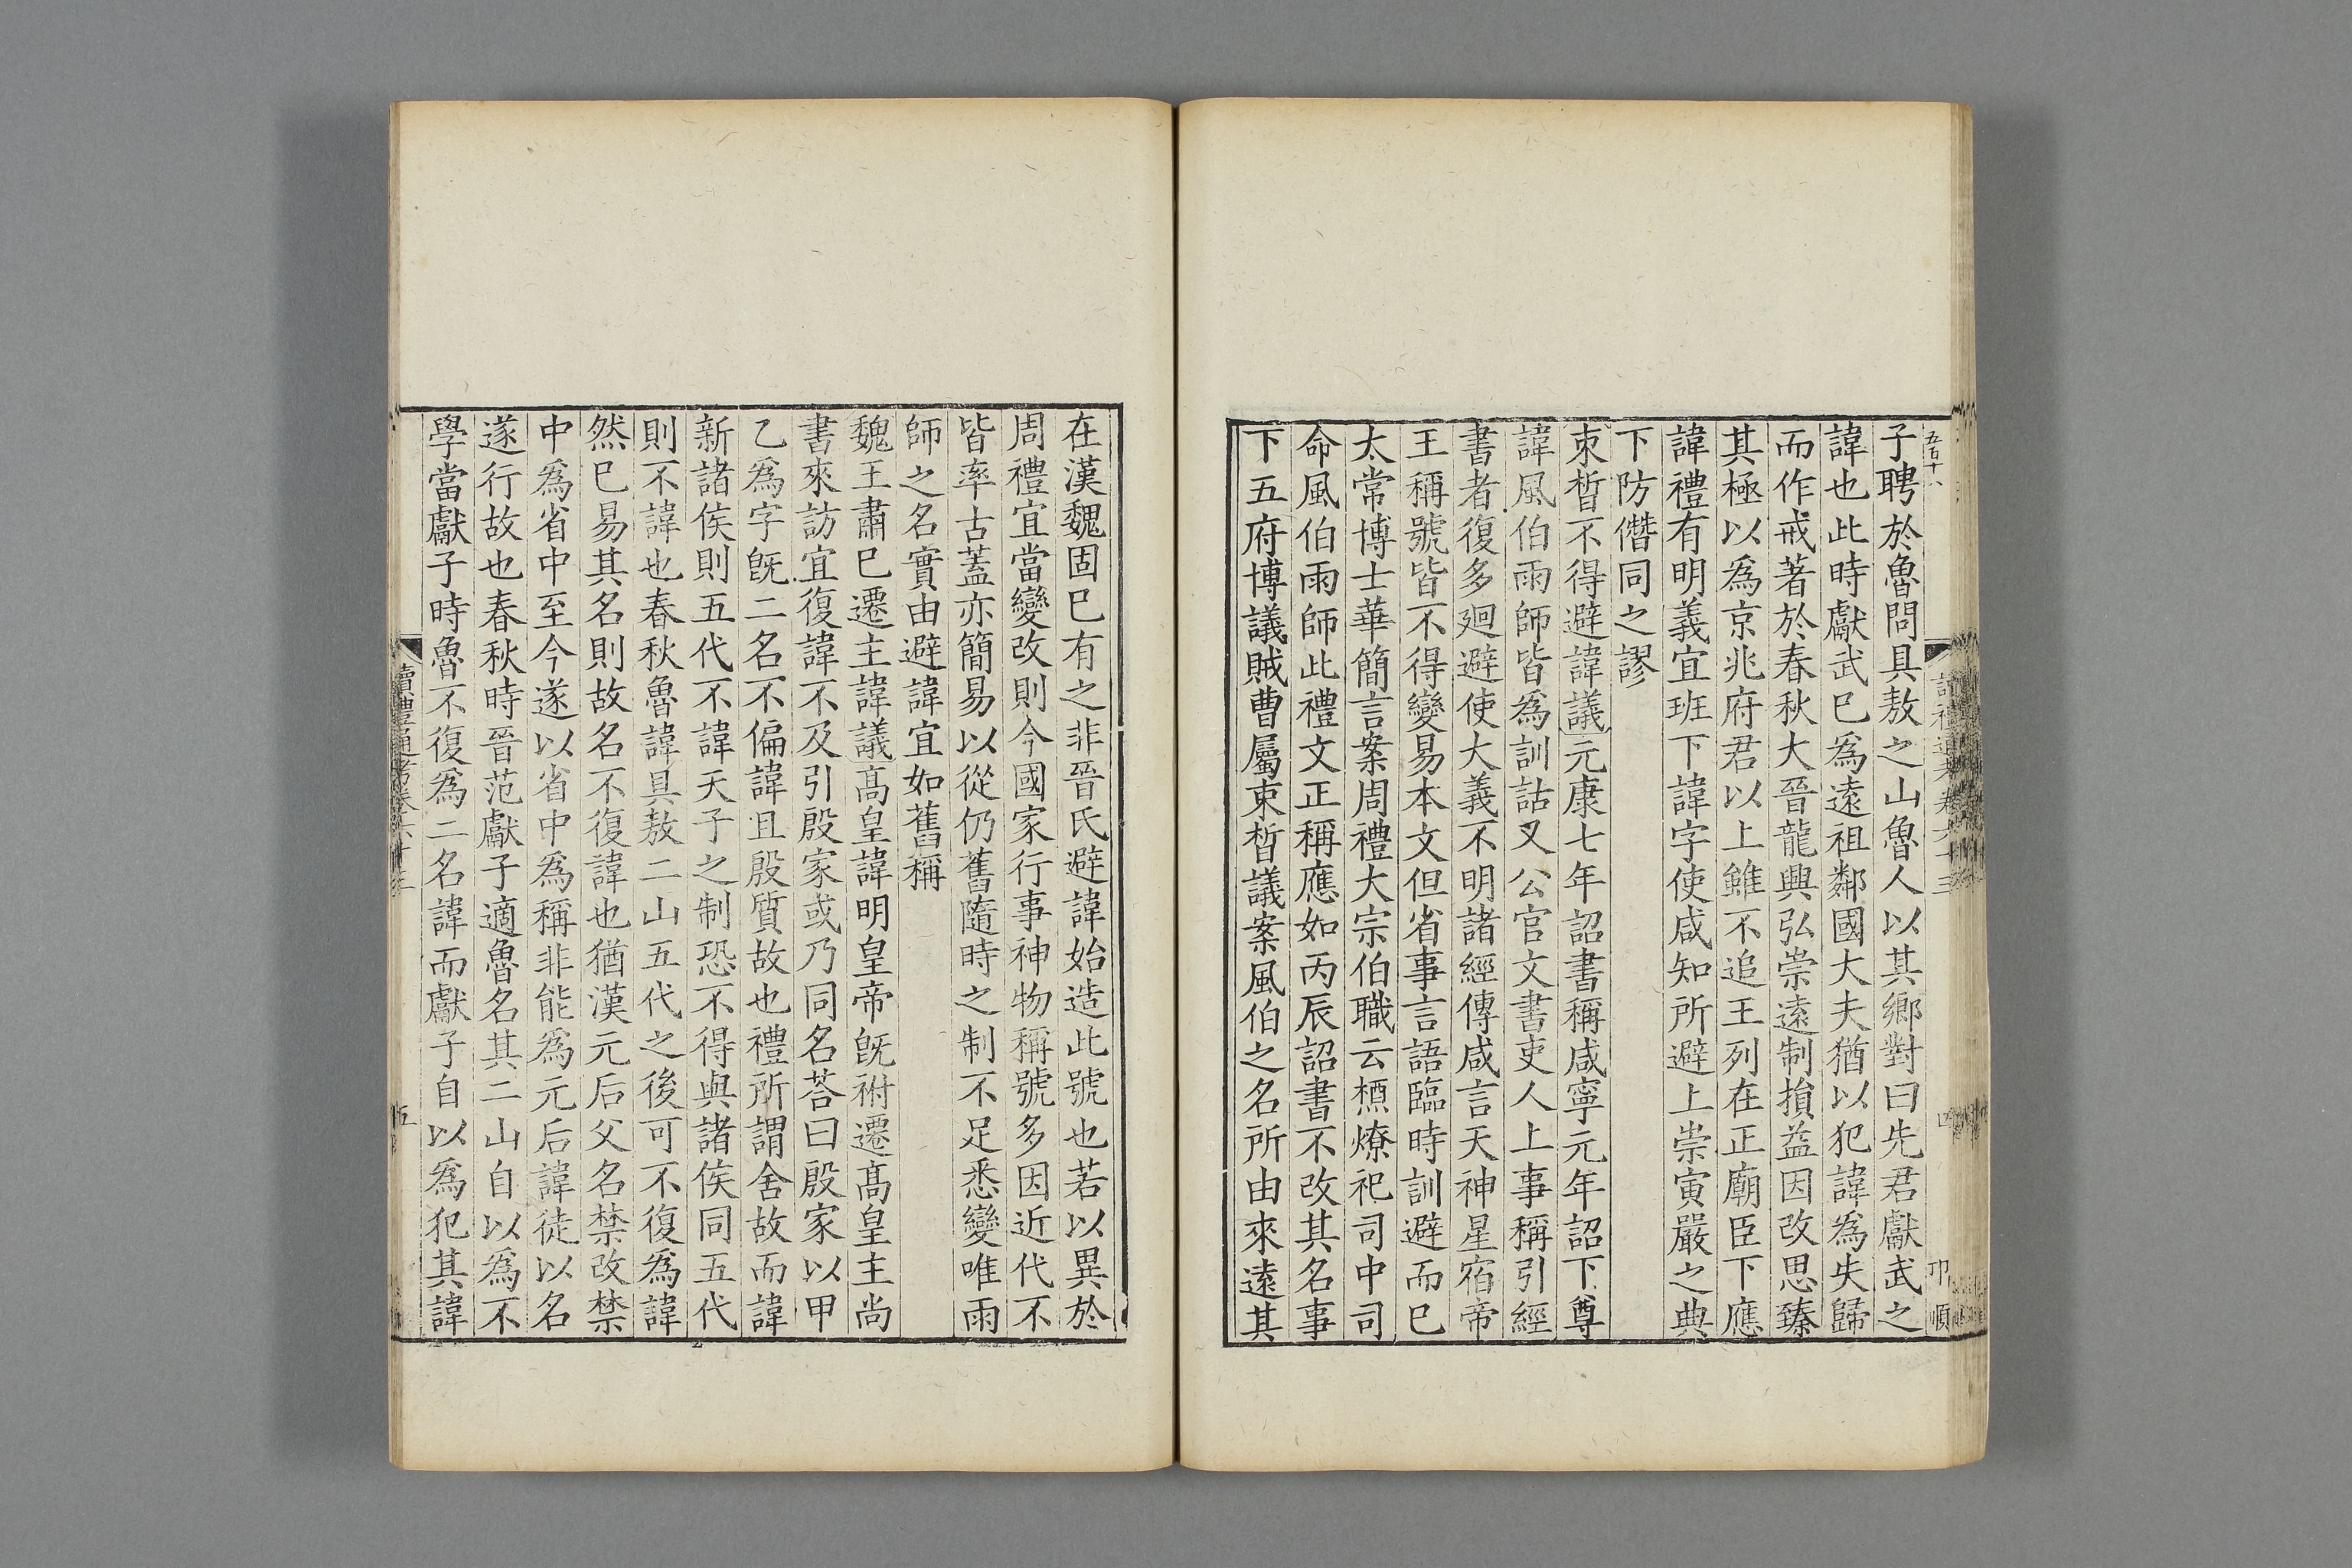 五百十八
子聘於魯問具敖之山魯人以其鄉對曰先君獻武之
諱也此時獻武巳爲遠祖鄰國大夫猶以犯諱爲失歸
而作戒著於春秋大晉龍興弘崇遠制損益因改思臻
其極以爲京兆府君以上雖不追王列在正廟臣下應
諱禮有明義宜班下諱字使咸知所避上崇寅嚴之典
下防僭同之謬
束晳不得避諱議元康七年詔書稱咸寧元年詔下尊
諱風伯雨師皆爲訓詁又公官文書吏人上事稱引經
書者復多廻避使大義不明諸經傳咸言天神星宿帝
王稱號皆不得變易本文但省事言語臨時訓避而巳
太常博士華簡言案周禮大宗伯職云槱燎祀司中司
命風伯雨師此禮文正稱應如丙辰詔書不改其名事
下五府博議賊曹屬束晳議案風伯之名所由來遠其
在漢魏固巳有之非晉氏避諱始造此號也若以異於
周禮宜當變改則今國家行事神物稱號多因近代不
皆率古蓋亦簡易以從仍舊隨時之制不足悉變唯雨
師之名實由避諱宜如舊稱
魏王肅巳遷主諱議高皇諱明皇帝既祔遷高皇主尚
書來訪宜復諱不及引殷家或乃同名荅曰殷家以甲
乙爲字既二名不偏諱且殷質故也禮所謂舍故而諱
新諸侯則五代不諱天子之制恐不得與諸侯同五代
則不諱也春秋魯諱具敖二山五代之後可不復爲諱
然巳易其名則故名不復諱也猶漢元后父名禁改禁
中爲省中至今遂以省中爲稱非能爲元后諱徒以名
遂行故也春秋時晉范獻子適魯名其二山自以爲不
學當獻子時魯不復爲二名諱而獻子自以爲犯其諱
讀禮通考卷六十三
五